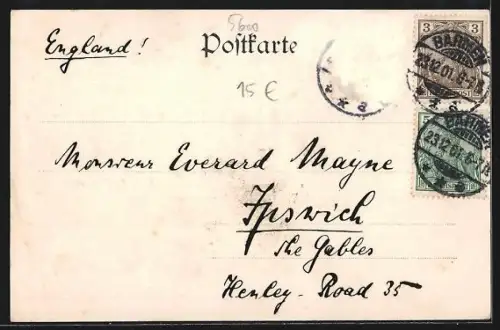 5600
3 3
England!
Postkarte
BARMEN
23.12.01.6-7N
15 €
* a
BARMEN
5
23.12.01.6-7N
Monsieur Everard Mayne
Ipswich
The Gables
Henley-Road 35